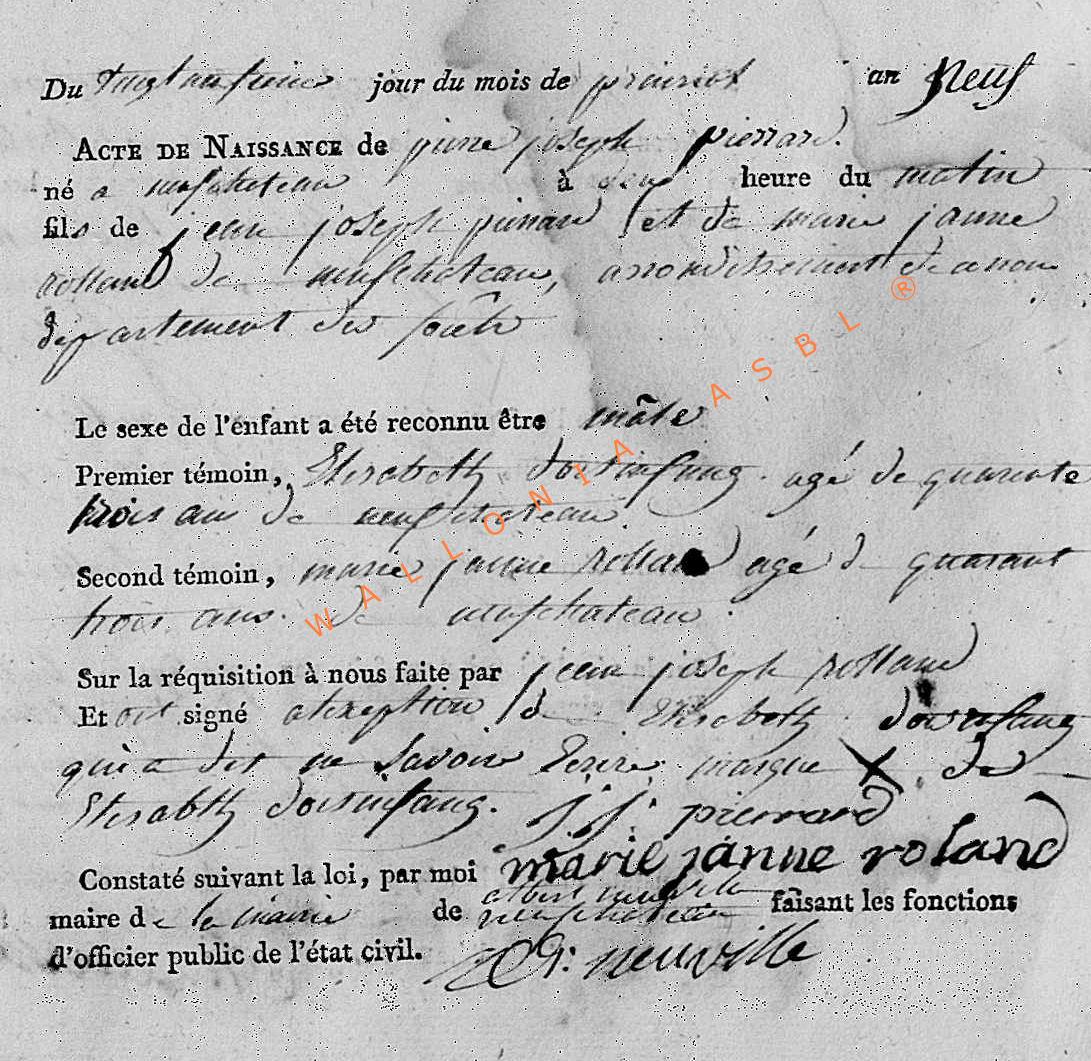 Du vingt unsieme jour du mois de prairial an neuf
ACTE DE NAISSANCE de pierre joseph pierrard.
né a neufchateau à heure du matin
fils de jean joseph pierrard et de marie janne
rolland de neufchateau, arrondissement
departement des forêts
Le sexe de l'enfant a été reconnu être mâle
Premier témoin, Elisabeth agé de quarente
trois ans de neufchateau.
Second témoin, marie janne rolland agé d quarant
trois ans. de neufchateau.
Sur la réquisition à nous faite par jean joseph rolland
Et ont signé d Elisabeth
qui a dit ne savoir Ecrire. marque X de
Elisabth
j. j. pierrard
marie janne roland
Constaté suivant la loi, par moi albert neuville
maire de la mairie de neufchateau faisant les fonctions
d'officier public de l'état civil.
neuville
WALLONIA ASBL ®